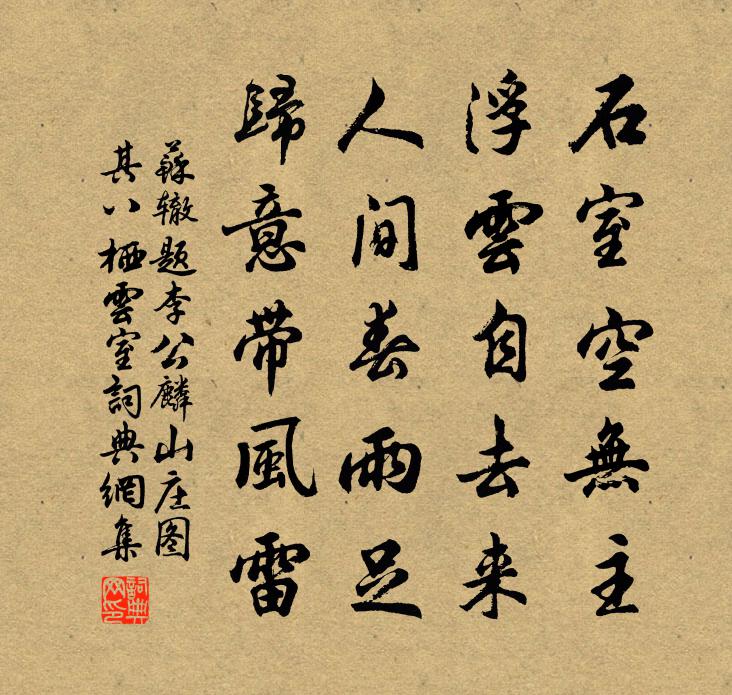 石室空無主
浮雲自去来
人間春雨足
歸意帶風雷
蘇辙题李公麟山庄图
其八栖雲室詞典網集
詞典网印